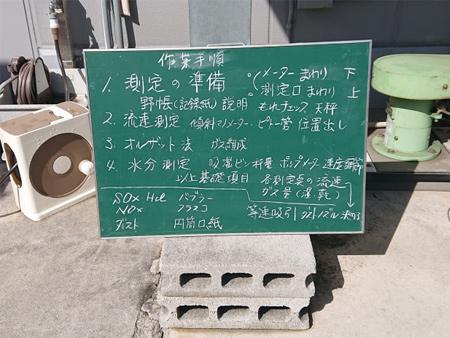 作業手順
1. 測定の準備 メーターまわり 下
測定口まわり 上
野帳(記録紙)説明 もれチェック 天秤
2. 流速測定 傾斜マノメーター ピトー管 位置出し
3. オルザット法 ガス組成
4. 水分測定 吸湿ビン秤量 ポンプ メーター 速度
以上基礎項目 各測定点の流速
ガス量(湿 乾)
SOx・HCl バブラー 等速吸引 ダストノズル 決める
NOx フラスコ
ダスト 円筒ロ紙